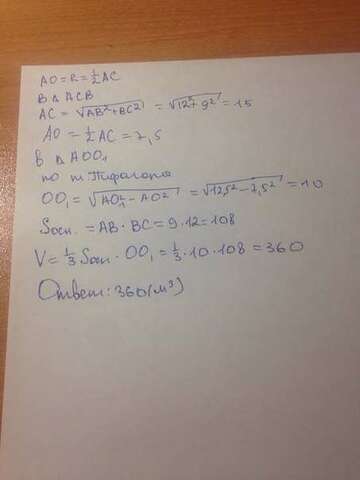 AO=R=½AC
В △ ACB
AC = √(AB²+BC²) = √(12²+9²) = 15
AO = ½AC = 7,5
В △ AOO₁
по т Пифагора
OO₁ = √(AO₁² - AO²) = √(12,5² - 7,5²) = 10
Sосн. = AB · BC = 9 · 12 = 108
V = ⅓ Sосн · OO₁ = ⅓ · 10 · 108 = 360
Ответ: 360 (м³)